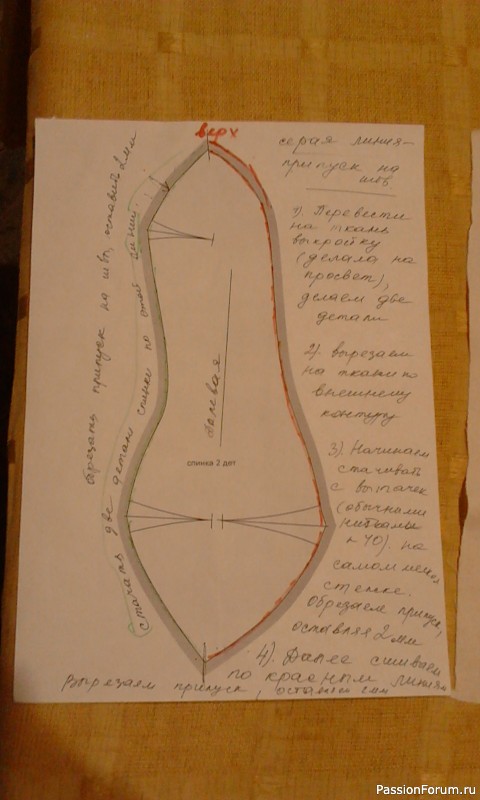 верх
серая линия -
припуск на
шов
1). Перевести
на ткань
выкройку
(делала на
просвет),
делаем две
детали
2). вырезаем
на ткани по
внешнему
контуру
3). Начинаем
стачивать
с вытачек
(обычными
нитками
№ 40). на
самом мелком
стежке.
Обрезаем припуск,
оставляя 2 мм
4). Далее сшиваем
по красным линиям
Вырезаем припуск, оставив 2мм
обрезать припуск на швы, оставив 2мм
стачать две детали спинки по этой линии.
Долевая
спинка 2 дет
PassionForum.ru